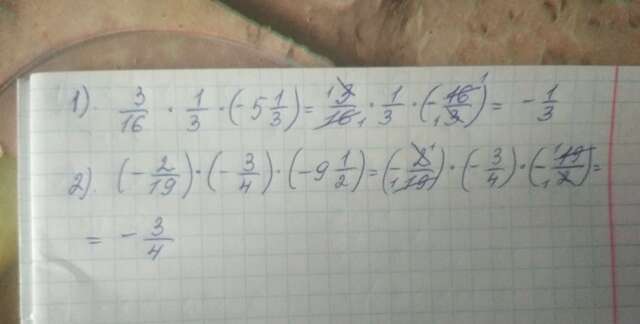 1). 3/16 · 1/3 · (-5 1/3) = 3/16 · 1/3 · (-16/3) = - 1/3
2). (- 2/19) · (- 3/4) · (-9 1/2) = (- 2/19) · (- 3/4) · (- 19/2) =
= - 3/4